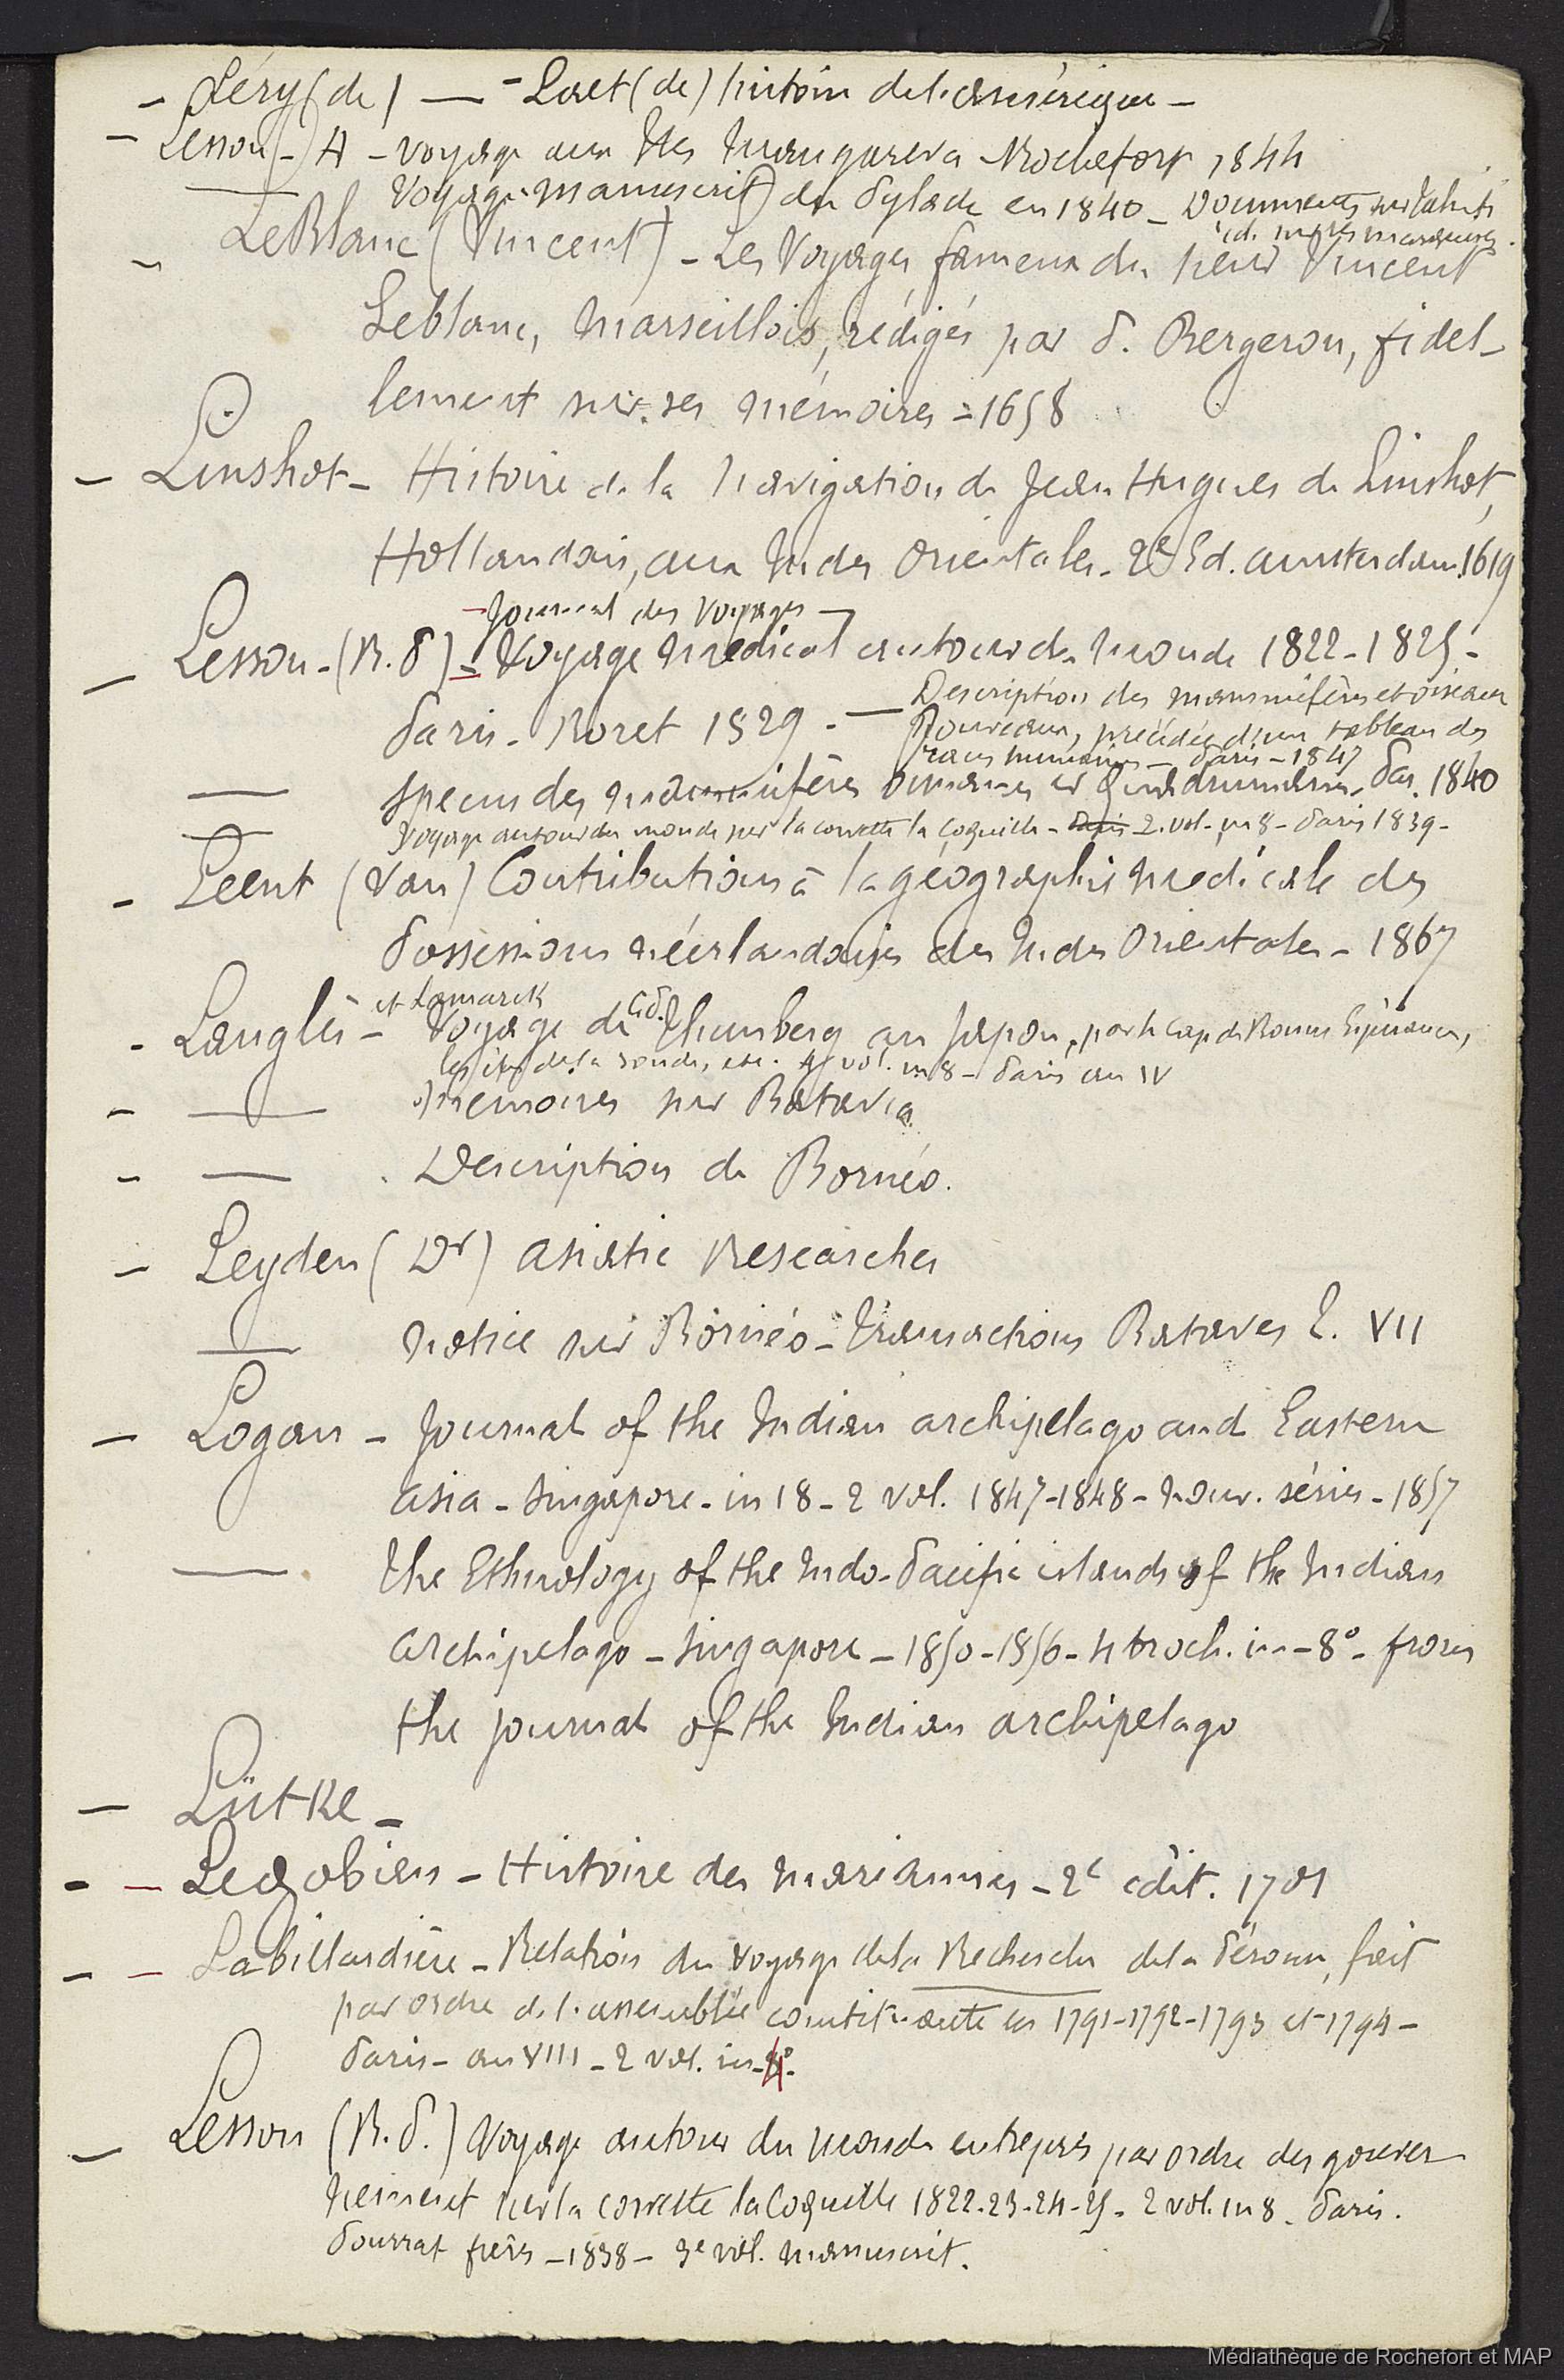 - Léry (de) — - Laet (de) histoire de l'amérique -
- Lesson - A - voyage aux Iles Mangareva Rochefort 1844
— Voyage manuscrit du Pylade en 1840 - Documents sur Tahiti
id. sur les marquises.
- Le Blanc (Vincent) - Les Voyages fameux du sieur Vincent
Leblanc, Marseillois, rédigés par P. Bergeron, fidel-
lement sur ses mémoires = 1658
- Linshot - Histoire de la navigation de Jean Hugues de Linshot,
Hollandais, aux Indes Orientales - 2e Ed. amsterdam 1619
- Journal des Voyages -
- Lesson - (R. P) - Voyage médical autour du monde 1822 - 1825 -
Paris - Roret 1829 - — Description des mammifères et oiseaux
nouveaux, précédée d'un tableau des
races humaines - Paris - 1847
— species des mammifères bimanes et Quadrumanes - Par. 1840
— Voyage autour du monde sur la corvette la Coquille - Paris - 2 vol. in 8 - Paris 1839 -
- Leent (Van) Contributions à la géographie médicale des
Possessions néerlandaises des Indes Orientales - 1867
et Lamarck C.P.
- Langlès - Voyage de Thunberg au Japon, par le Cap de Bonne Espérance,
les îles de la sonde, etc. 4 vol. in 8 - Paris an IV
- — mémoires sur Batavia
- — Description de Bornéo.
- Leyden (Dr) asiatic Researches
— notice sur Bornéo - Transactions Bataves T. VII
- Logan - Journal of the Indian archipelago and Eastern
asia - Singapore - in 18 - 2 vol. 1847-1848 - nouv. séries - 1857
— The Ethnology of the Indo-Pacific islands of the Indian
archipelago - Singapore - 1850 - 1856 - 4 broch. in-8° - from
the journal of the Indian archipelago
- Lütke -
- - Legobien - Histoire des mariannes - 2e édit. 1701
- - Labillardière - Relation du voyage de la Recherche de la Pérouse, fait
par ordre de l'assemblée constituante en 1791-1792-1793 et 1794 -
Paris - an VIII - 2 vol. in-4°-
- Lesson (R. P.) Voyage autour du monde entrepris par ordre du gouver-
nement sur la corvette la Coquille 1822-23-24-25 - 2 vol. in 8 - Paris.
Pourrat frères - 1838 - 3e vol. manuscrit.
Médiathèque de Rochefort et MAP